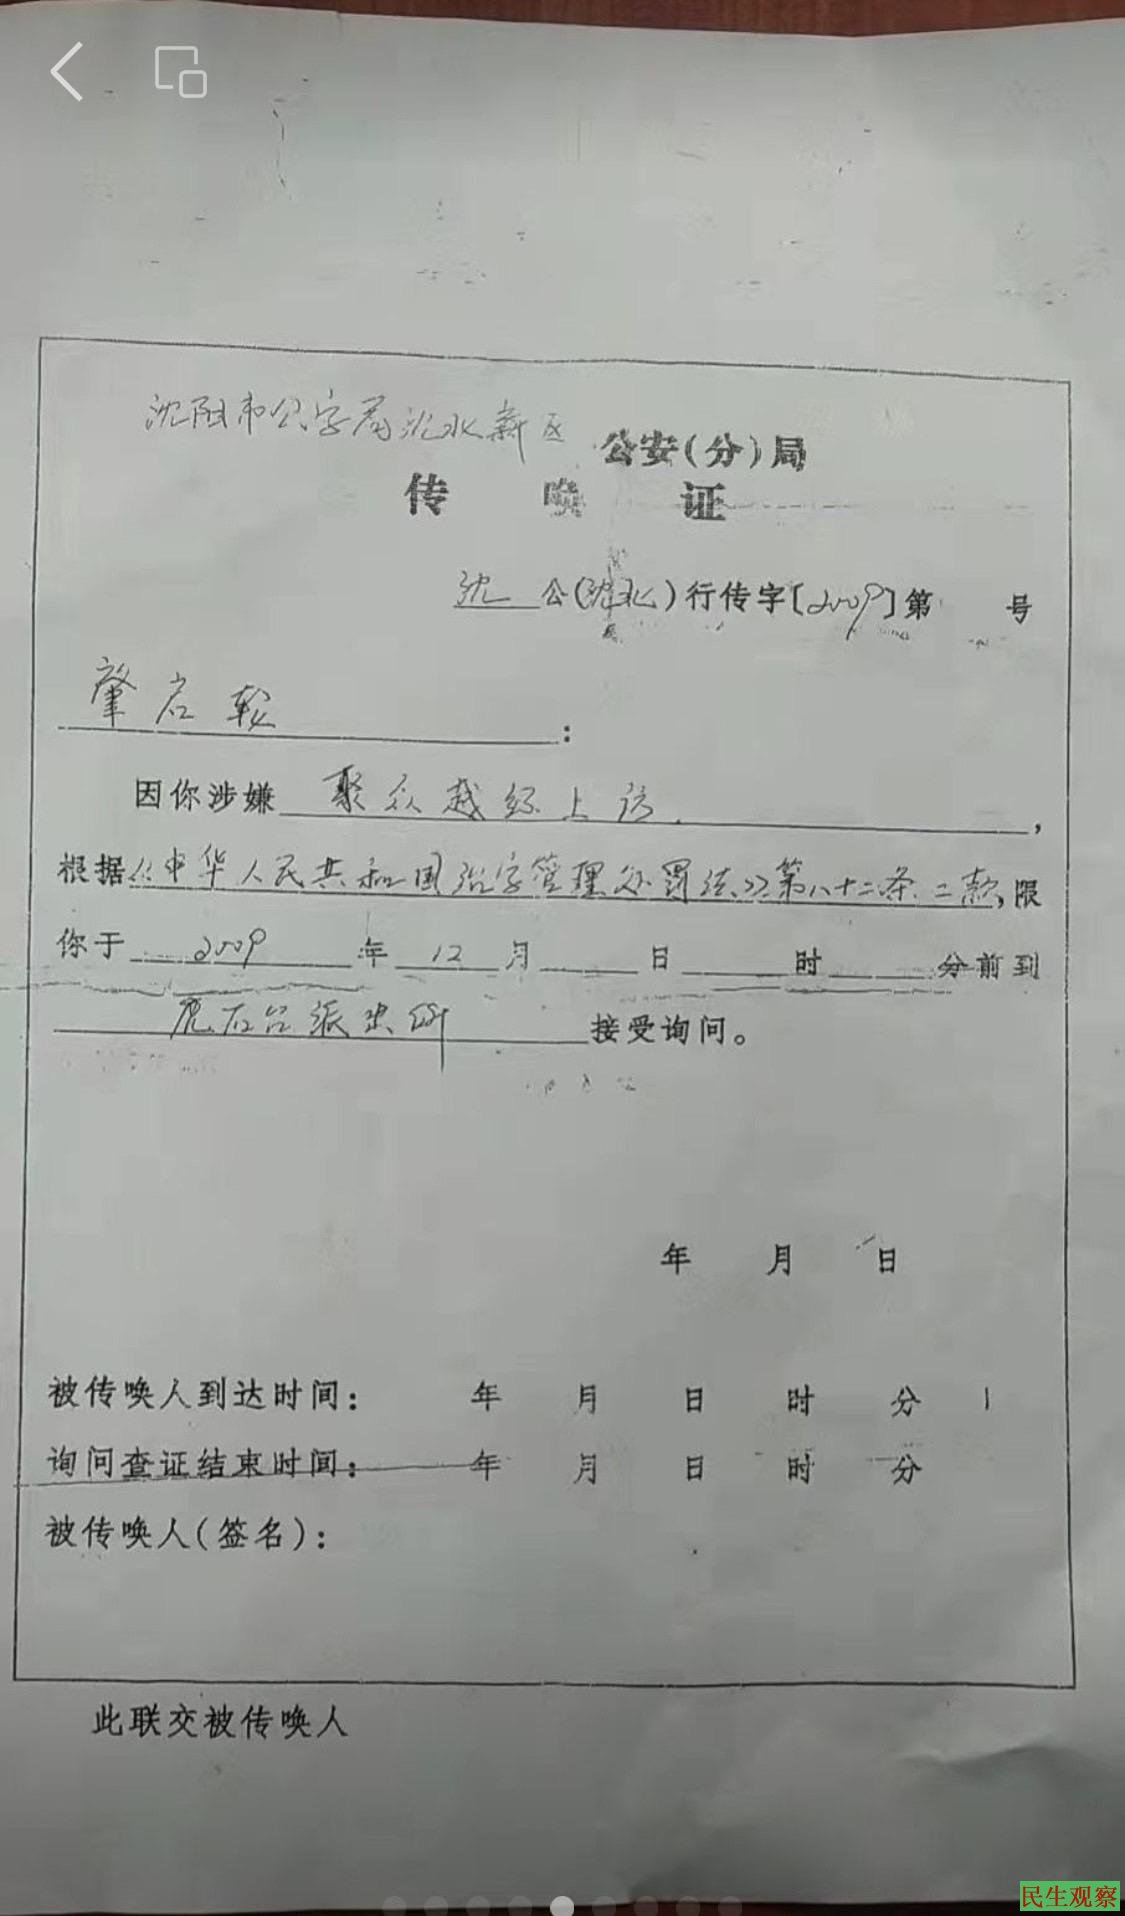 沈阳市公安局沈北新区 公安(分)局
传 唤 证
沈 公(沈北)行传字[2009]第 号
肇启 :
因你涉嫌 聚众越级上访 ,
根据《中华人民共和国治安管理处罚法》第八十二条二款,限
你于 2009 年 12 月 日 时 分前到
虎石台派出所 接受询问。
年 月 日
被传唤人到达时间: 年 月 日 时 分
询问查证结束时间: 年 月 日 时 分
被传唤人(签名):
此联交被传唤人
民生观察